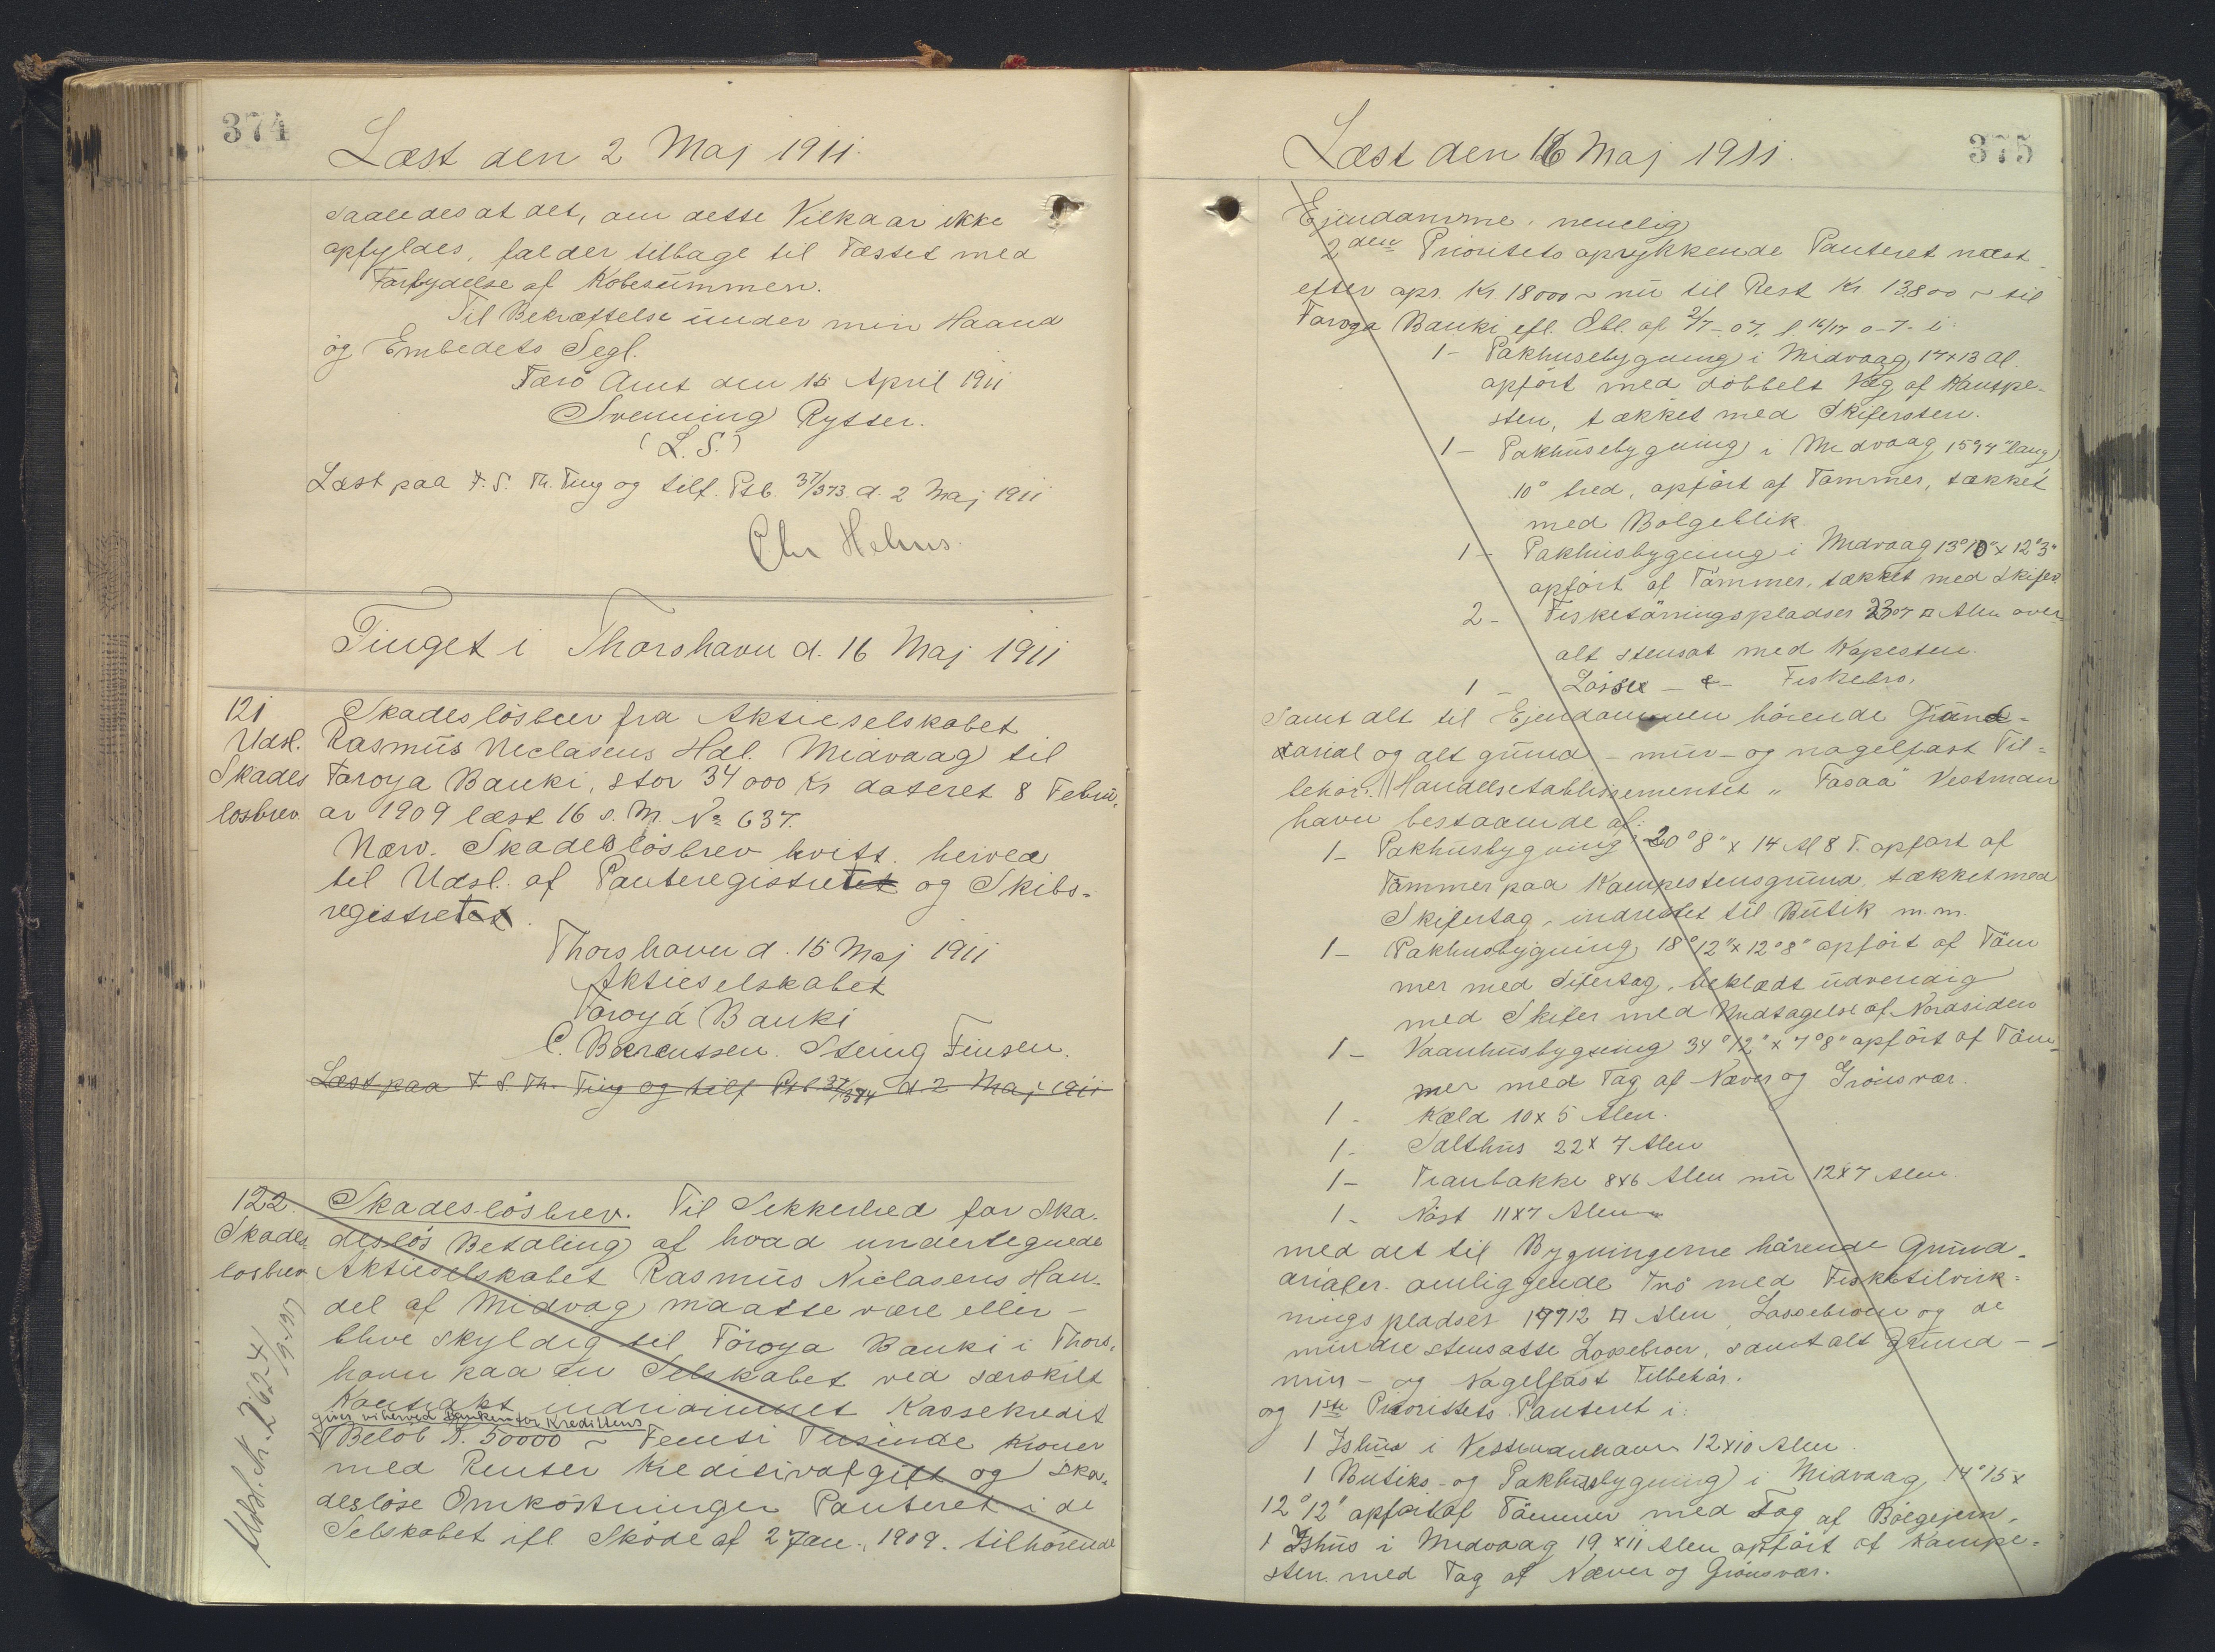 374
Læst den 2 Maj 1911.
saaledes at det, om dette Vilkaar ikke
opfyldes, falder tilbage til Fæstet med
Fortydelse af Købesummen.
Til Bekræftelse under min Haand
og Embedets Segl.
Færö Amt den 15 April 1911
Svenning Rytter.
(L.S.)
Læst paa F. S. Th. Ting og tilf. Ptb. 37/373. d. 2 Maj 1911
Chr Helms.
Tinget i Thorshavn d. 16 Maj 1911
121
Udsl.
Skades
losbrev.
Skadeslösbrev fra Aktieselskabet
Rasmus Niclasens Hdl. Midvaag til
Foroya Banki, stor 34000 Kr dateret 8 Febru-
ar 1909 læst 16 s. M. No 637.
Nærv. Skadeslösbrev kvitt. herved
til Udsl. af Panteregistretet og Skibs-
registretet.
Thorshavn d. 15 Maj 1911
Aktieselskabet
Foroya Banki
C. Bærentsen. Steing Finsen.
Læst paa F. S. Th. Ting og tilf Ptb. 37/374 d. 2 Maj 1911
122.
Skades-
losbrev
Udsl. A. 262 4/
Skadeslösbrev. Til Sikkerhed for Ska-
deslös Betaling af hvad undertegnede
Aktieselskabet Rasmus Niclasens Han-
del af Midvag maatte være eller -
blive skyldig til Föroya Banki i Thors-
havn paa en Selskabet ved særskilt
Kontrakt indrömmet Kassekredit
giver vi herved Banken for Kredittens
Belöb Kr. 50000 ~ Femti Tusinde Kroner
med Renter Kreditivafgift og ska-
deslöse Omkostninger Panteret i de
Selskabet ifl Sköde af 2 Jan. 1909. tilhörende
375
Læst den 16 Maj 1911.
Ejendomme, nemlig
2den Prioritets oprykkende Panteret næst
efter opr. Kr. 18000 ~ nu til Rest Kr. 13800 ~ til
Foroya Banki efl. Obl. af 2/7-07. l 16/17 0-7- i:
1- Pakhusebygning i Midvaag 17x13 Al.
opfört med dobbelt Væg af Kampe-
sten, tækket med Skifersten.
1- Pakhusebygning i Midvaag 15°4" lang
10° bred, opfört af Tommer, tækket
med Bolgeblik.
1- Pakhusbygning i Midvaag 13°10" x 12°3"
opfört af Tömmer, tækket med Skifer.
2- Fisketörringspladser 2307 □ Alen over-
alt stensat med Kapesten.
1 - Losse - & - Fiskebro.
Samt alt til Ejendommen hörende Grund-
areal og alt grund - mur - og nagelfast Til-
behör. Handelsetablissementet "Fasaa" Vestman
havn bestaaende af:
1- Pakhusbygning 20°8" x 14 Al 8 T. opfört af
Tømmer paa Kampestensgrund, tækket med
Skifertag, indrettet til Butik m.m.
1- Pakhusbygning 18°12" x 12°8" opfört af Töm
mer med Sifertag, beklædt udvendig
med Skifer med Undtagelse af Nordsiden
1- Vaanhusbygning 34°12" x 7°8" opfört af Töm-
mer med Tag af Næver og Grönsvær.
1- Kæld 10x5 Alen.
1- Salthus 22x7 Alen
1- Tranbakke 8x6 Alen nu 12x7 Alen.
1- Nöst 11x7 Alen
med det til Bygningerne hörende Grund-
arialer. omliggende Trö med Fisketilvirk-
nings pladser 19712 □ Alen, Lossebroen og de
mindre stensatte Lossebroer, samt alt grund -
mur - og Nagelfast Tilbehör.
og 1ste Prioritets Panteret i:
1 Ishus i Vestmanhavn 12x10 Alen
1 Butiks- og Pakhusbygning i Midvaag 14°15 x
12°12" opfört af Tömmer med Tag af Bölgejern.
1 Ishus i Midvaag 19 x 11 Alen opfört af Kampe-
sten med Tag af Næver og Grönsvær.